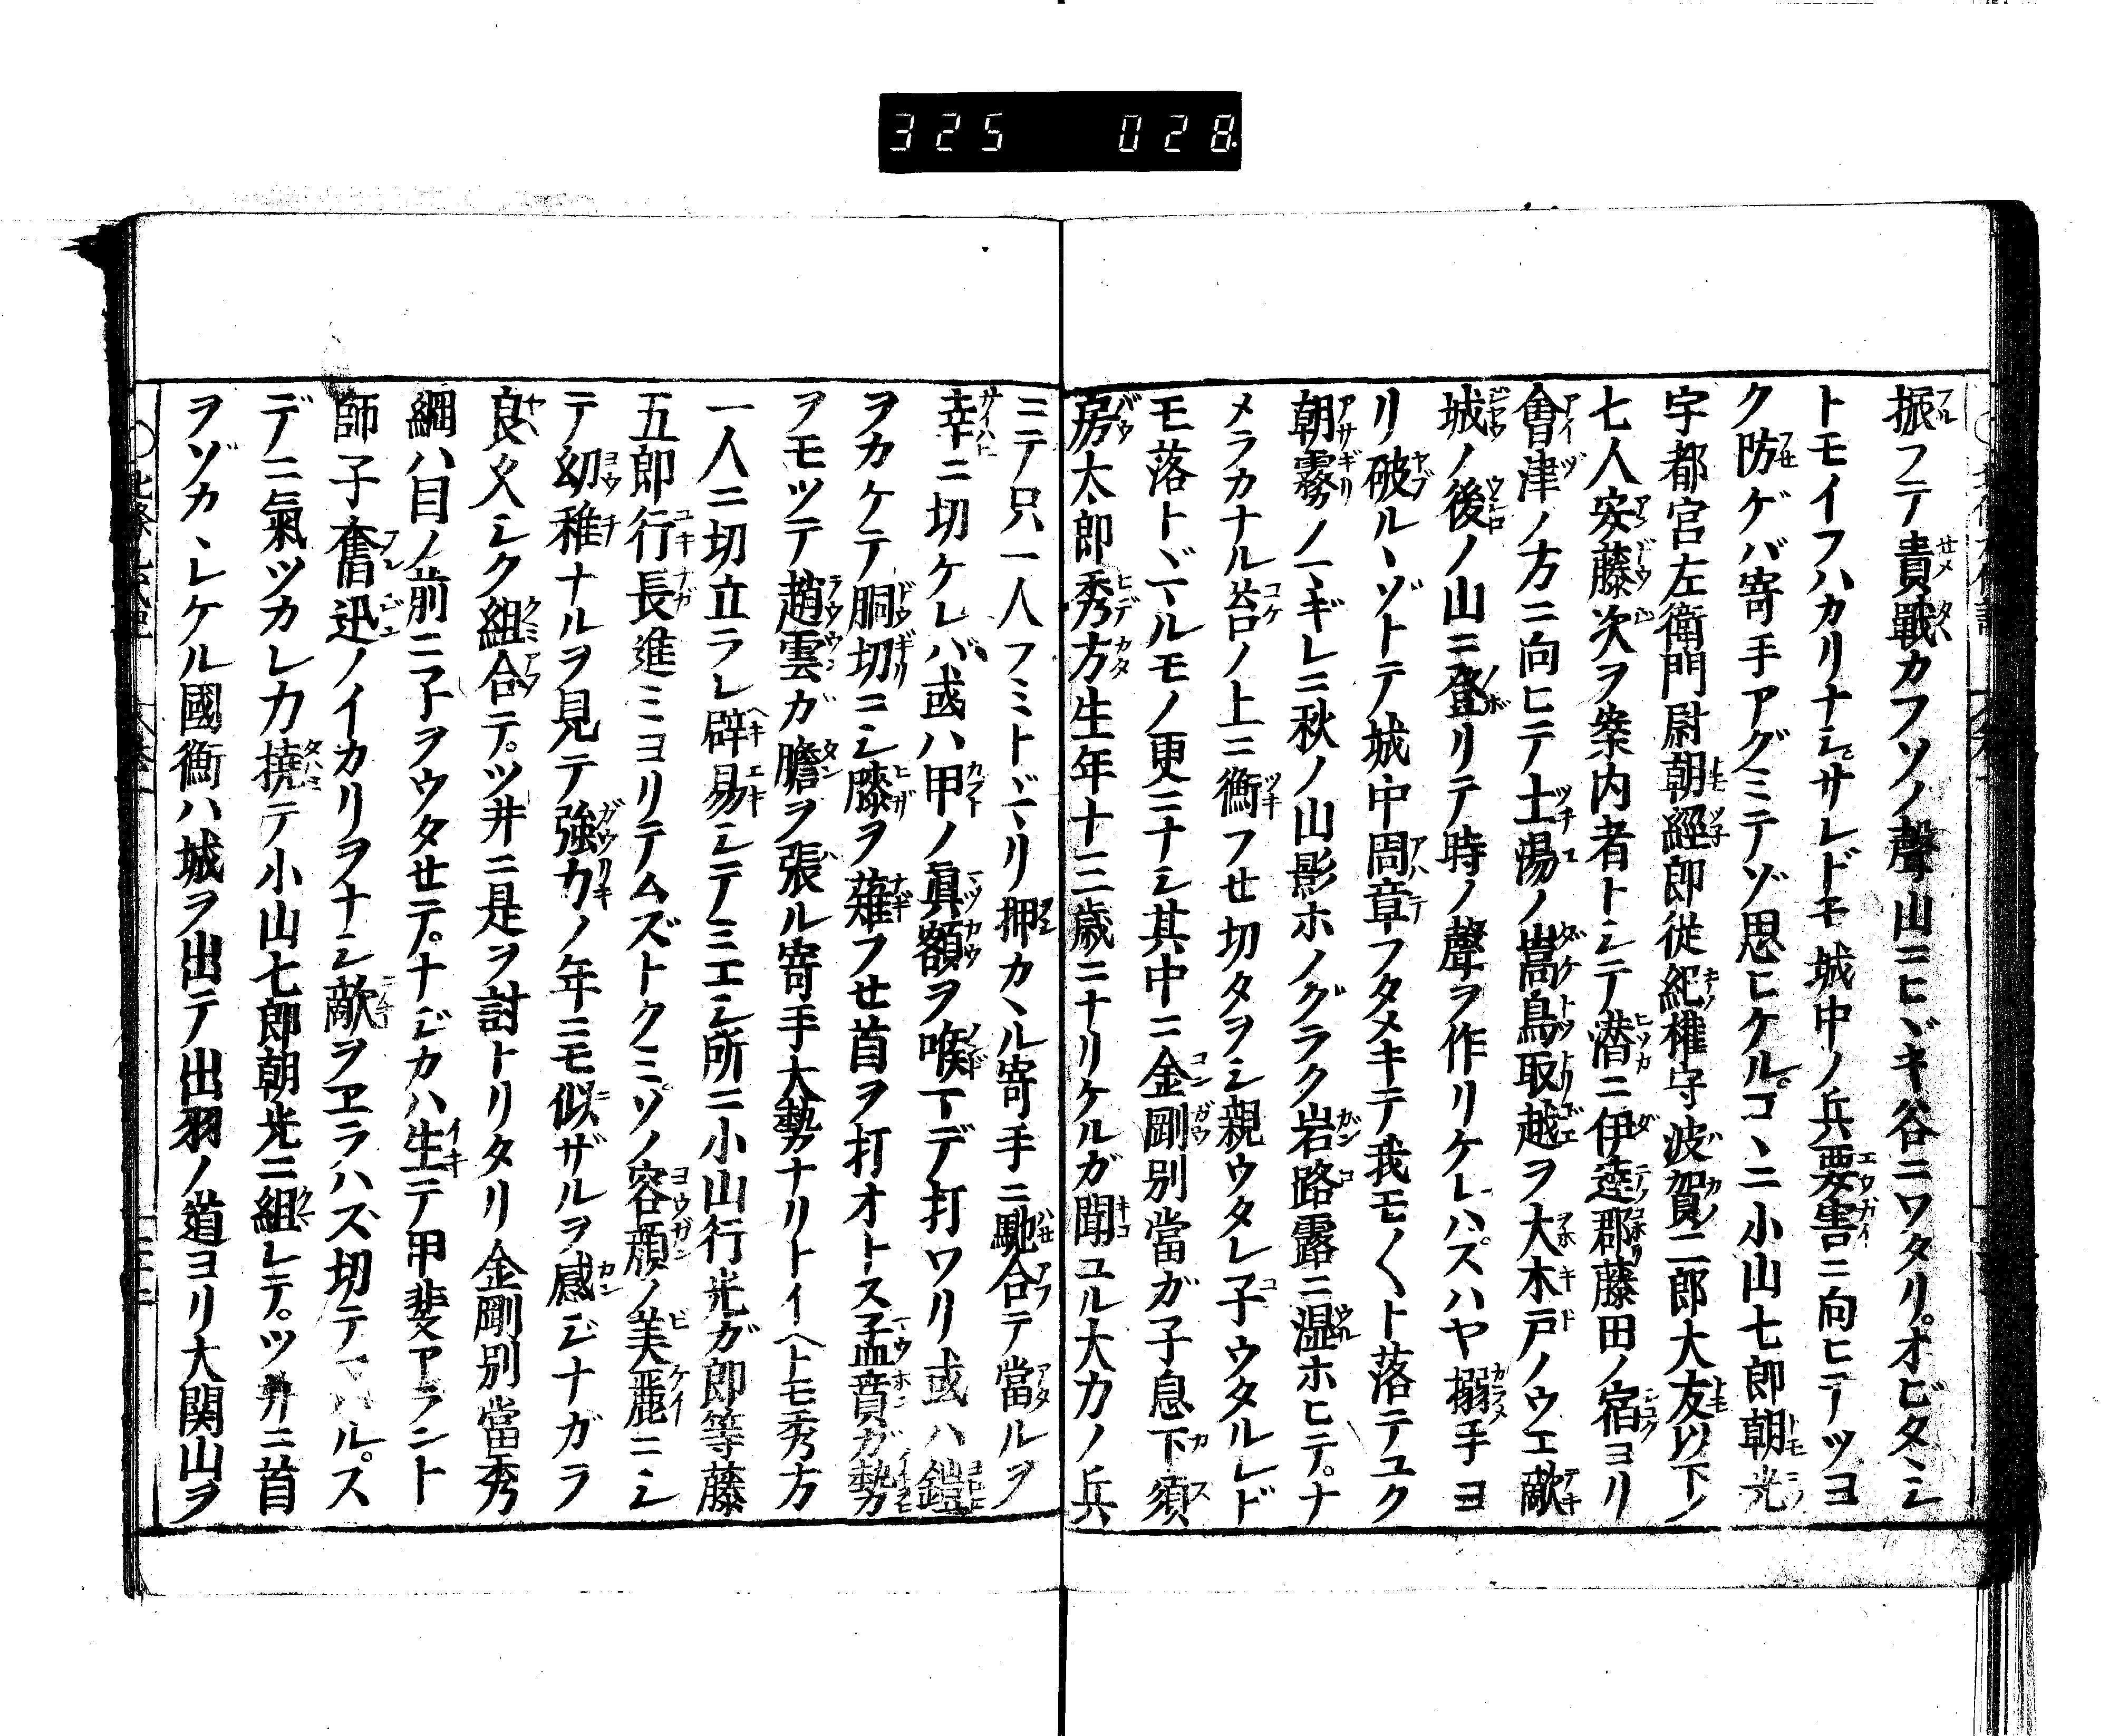 325 028
振フテ責戰カフソノ聲山ニヒヾキ谷ニワタリ。オビタヾシ
トモイフハカリナシ。サレドモ城中ノ兵要害ニ向ヒテツヨ
ク防ゲバ寄手アグミテゾ思ヒケル。コヽニ小山七郎朝光
宇都宮左衛門尉朝經郎従紀権守波賀二郎大友以下ノ
七人安藤次ヲ案内者トシテ潜ニ伊達郡藤田ノ宿ヨリ
會津ノ方ニ向ヒテ土湯ノ嵩鳥取越ヲ大木戸ノウエ敵
城ノ後ノ山ニ登リテ時ノ聲ヲ作リケレハ。スハヤ搦手ヨ
リ破ルヽゾトテ城中周章フタメキテ我モ〱ト落テユク
朝霧ノマギレニ秋ノ山影ホノグラク岩路露ニ湿ホヒテ。ナ
メラカナル苔ノ上ニ衝フセ切タヲシ親ウタレ子ウタルレド
モ落トヾマルモノ更ニナシ其中ニ金剛別當ガ子息下須
房太郎秀方生年十三歳ニナリケルガ聞ユル大力ノ兵
ニテ只一人フミトヾマリ押カヽル寄手ニ馳合テ當ルヲ
幸ニ切ケレバ或ハ甲ノ眞額ヲ喉下デ打ワリ或ハ鎧
ヲカケテ胴切ニシ膝ヲ薙フセ首ヲ打オトス孟賁ガ勢
ヲモツテ趙雲ガ膽ヲ張ル寄手大勢ナリトイヘトモ秀方
一人ニ切立ラレ辟易シテミエシ所ニ小山行光ガ郎等藤
五郎行長進ミヨリテムズトクミソノ容顔ノ美麗ニシ
テ幼稚ナルヲ見テ強力ノ年ニモ似ザルヲ感ジナガラ
良久シク組合テ。ツ井ニ是ヲ討トリタリ金剛別當秀
綱ハ目ノ前ニ子ヲウタセテ。ナジカハ生テ甲斐アラント
師子奮迅ノイカリヲナシ敵ヲヱラハズ切テマハル。ス
デニ氣ツカレ力撓テ小山七郎朝光ニ組レテ。ツ井ニ首
ヲゾカヽレケル國衡ハ城ヲ出テ出羽ノ道ヨリ大関山ヲ